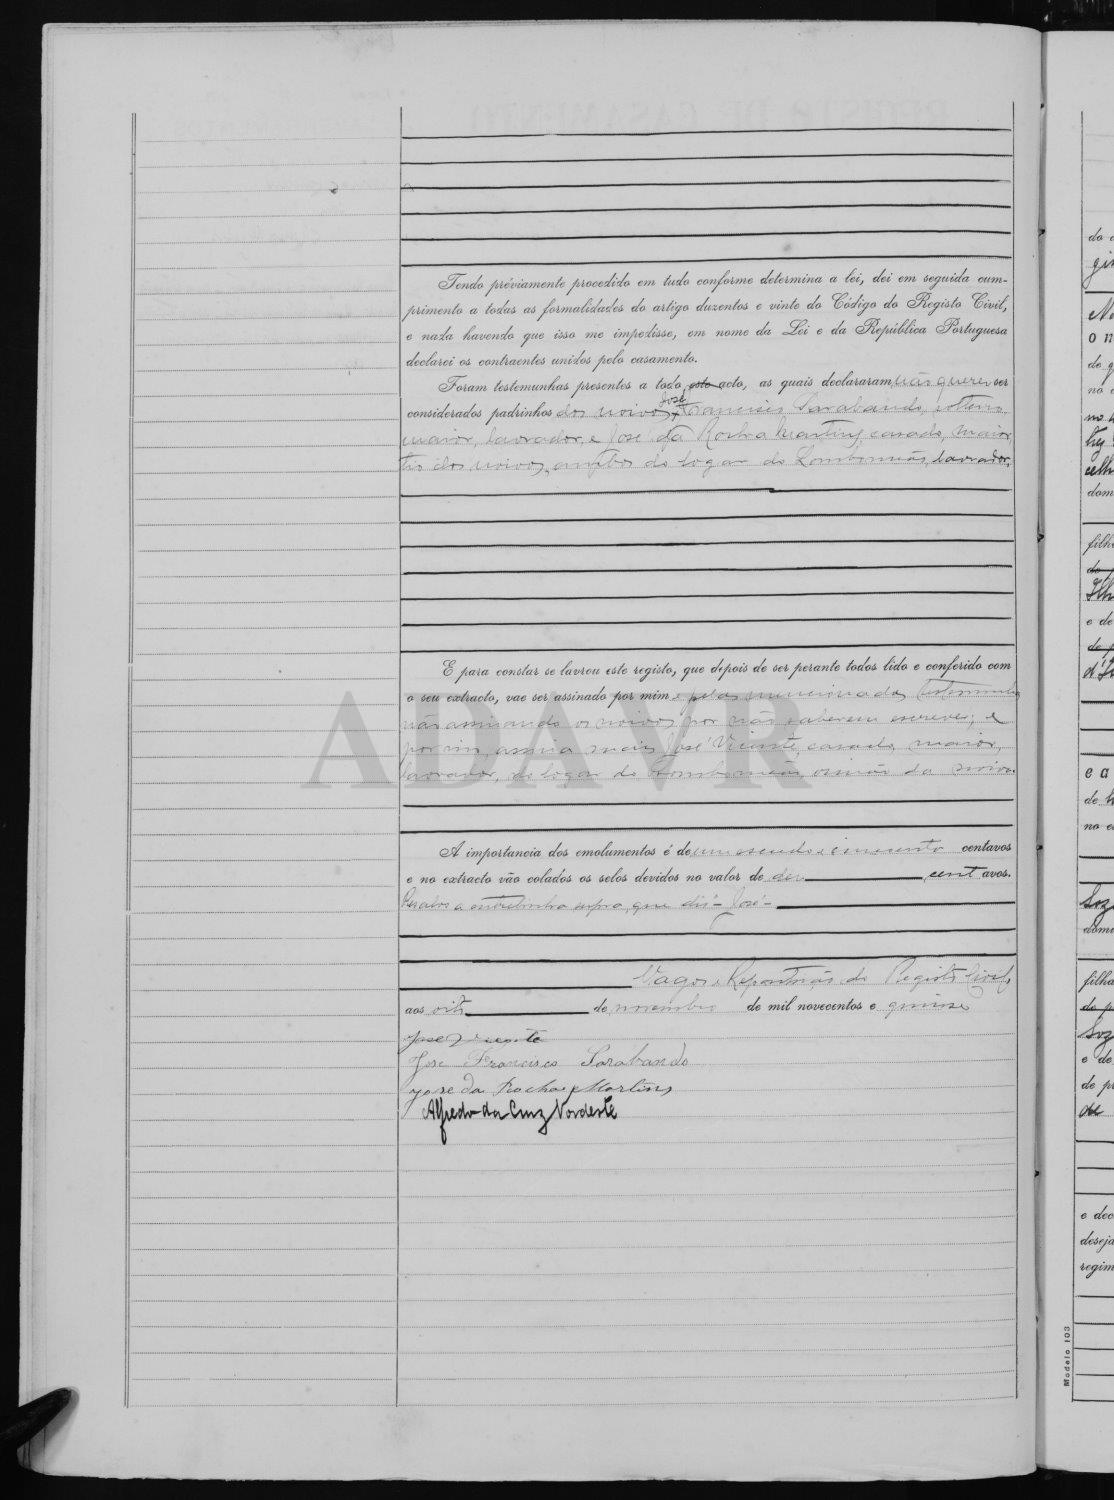 Tendo préviamente procedido em tudo conforme determina a lei, dei em seguida cum-
primento a todas as formalidades do artigo duzentos e vinte do Código do Registo Civil,
e nada havendo que isso me impedisse, em nome da Lei e da República Portuguesa
declarei os contraentes unidos pelo casamento.
Foram testemunhas presentes a todo este acto, as quais declararam não querer ser
José
considerados padrinhos dos noivos, Francisco Sarabando, solteiro,
maior, lavrador, e José da Rocha Martins, casado, maior,
tio dos noivos, ambos do logar de Lombomeão, lavrador.
E para constar se lavrou este registo, que depois de ser perante todos lido e conferido com
o seu extracto, vae ser assinado por mim e pelas mencionadas testemunhas
não assinando os noivos por não saberem escrever; e
por fim assina mais José Vicente, casado, maior,
lavrador, do logar de Lombomeão, irmão da noiva.
A importancia dos emolumentos é de um escudo e cincoenta centavos
e no extracto vão colados os selos devidos no valor de dez centavos.
Resalvo a entrelinha supra, que diz - José -
Vagos e Repartição do Registo Civil,
aos oito de novembro de mil novecentos e quinze
José Vicente
José Francisco Sarabando
José da Rocha Martins
Alfredo da Cruz Nordeste
ADAVR
Modelo 103